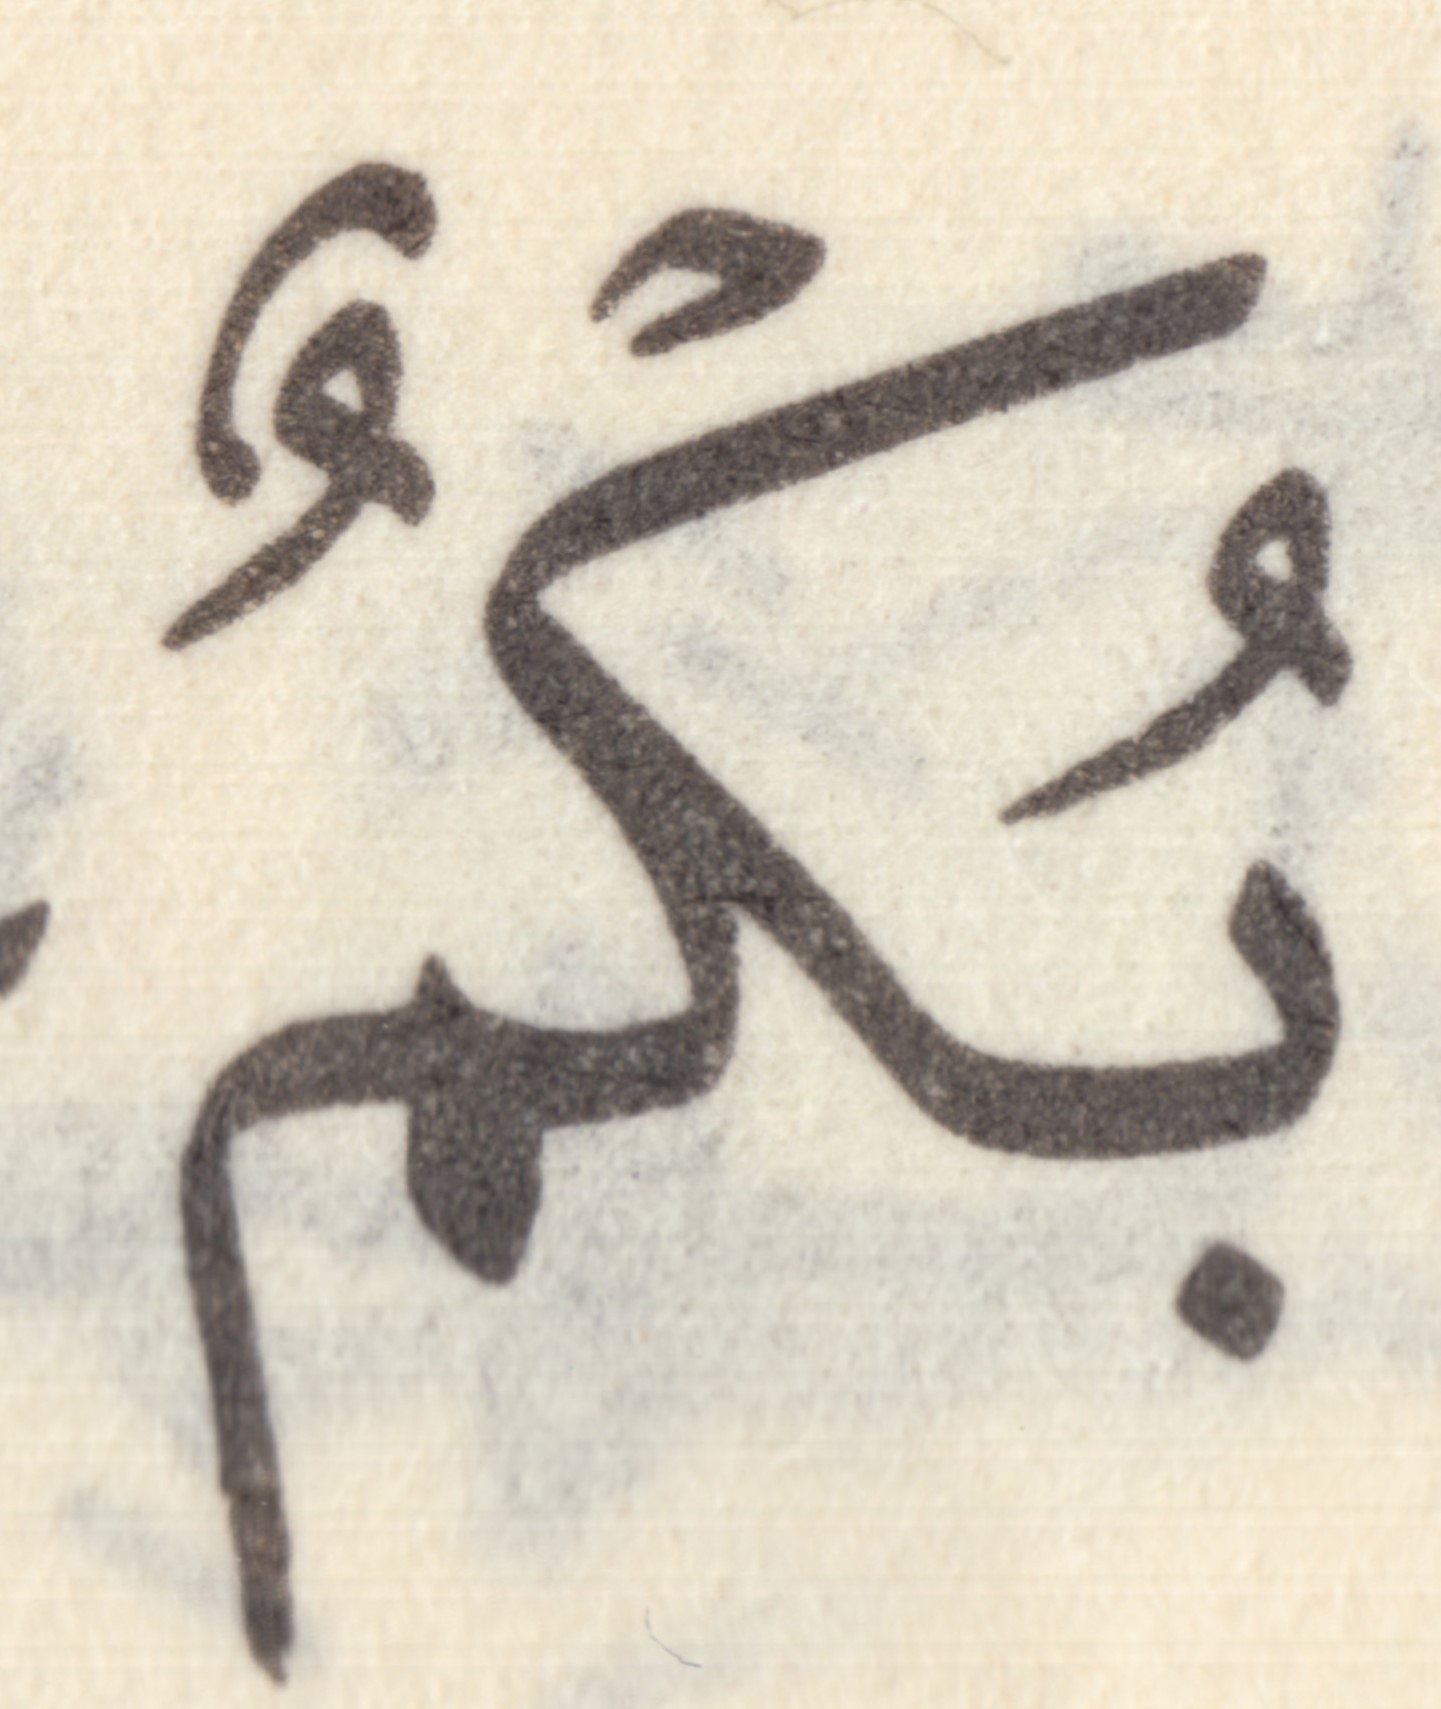 بُكْمٌ